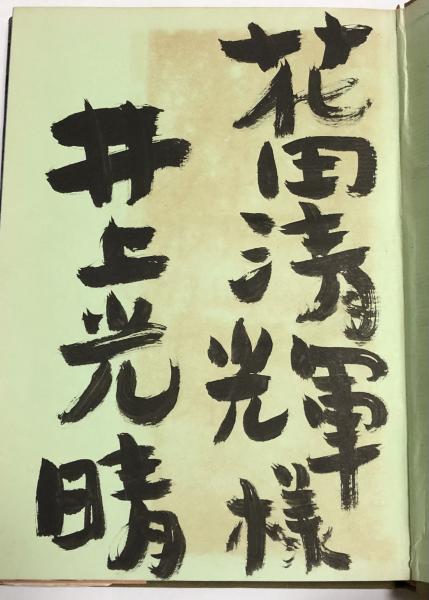 花田清輝様
井上光晴